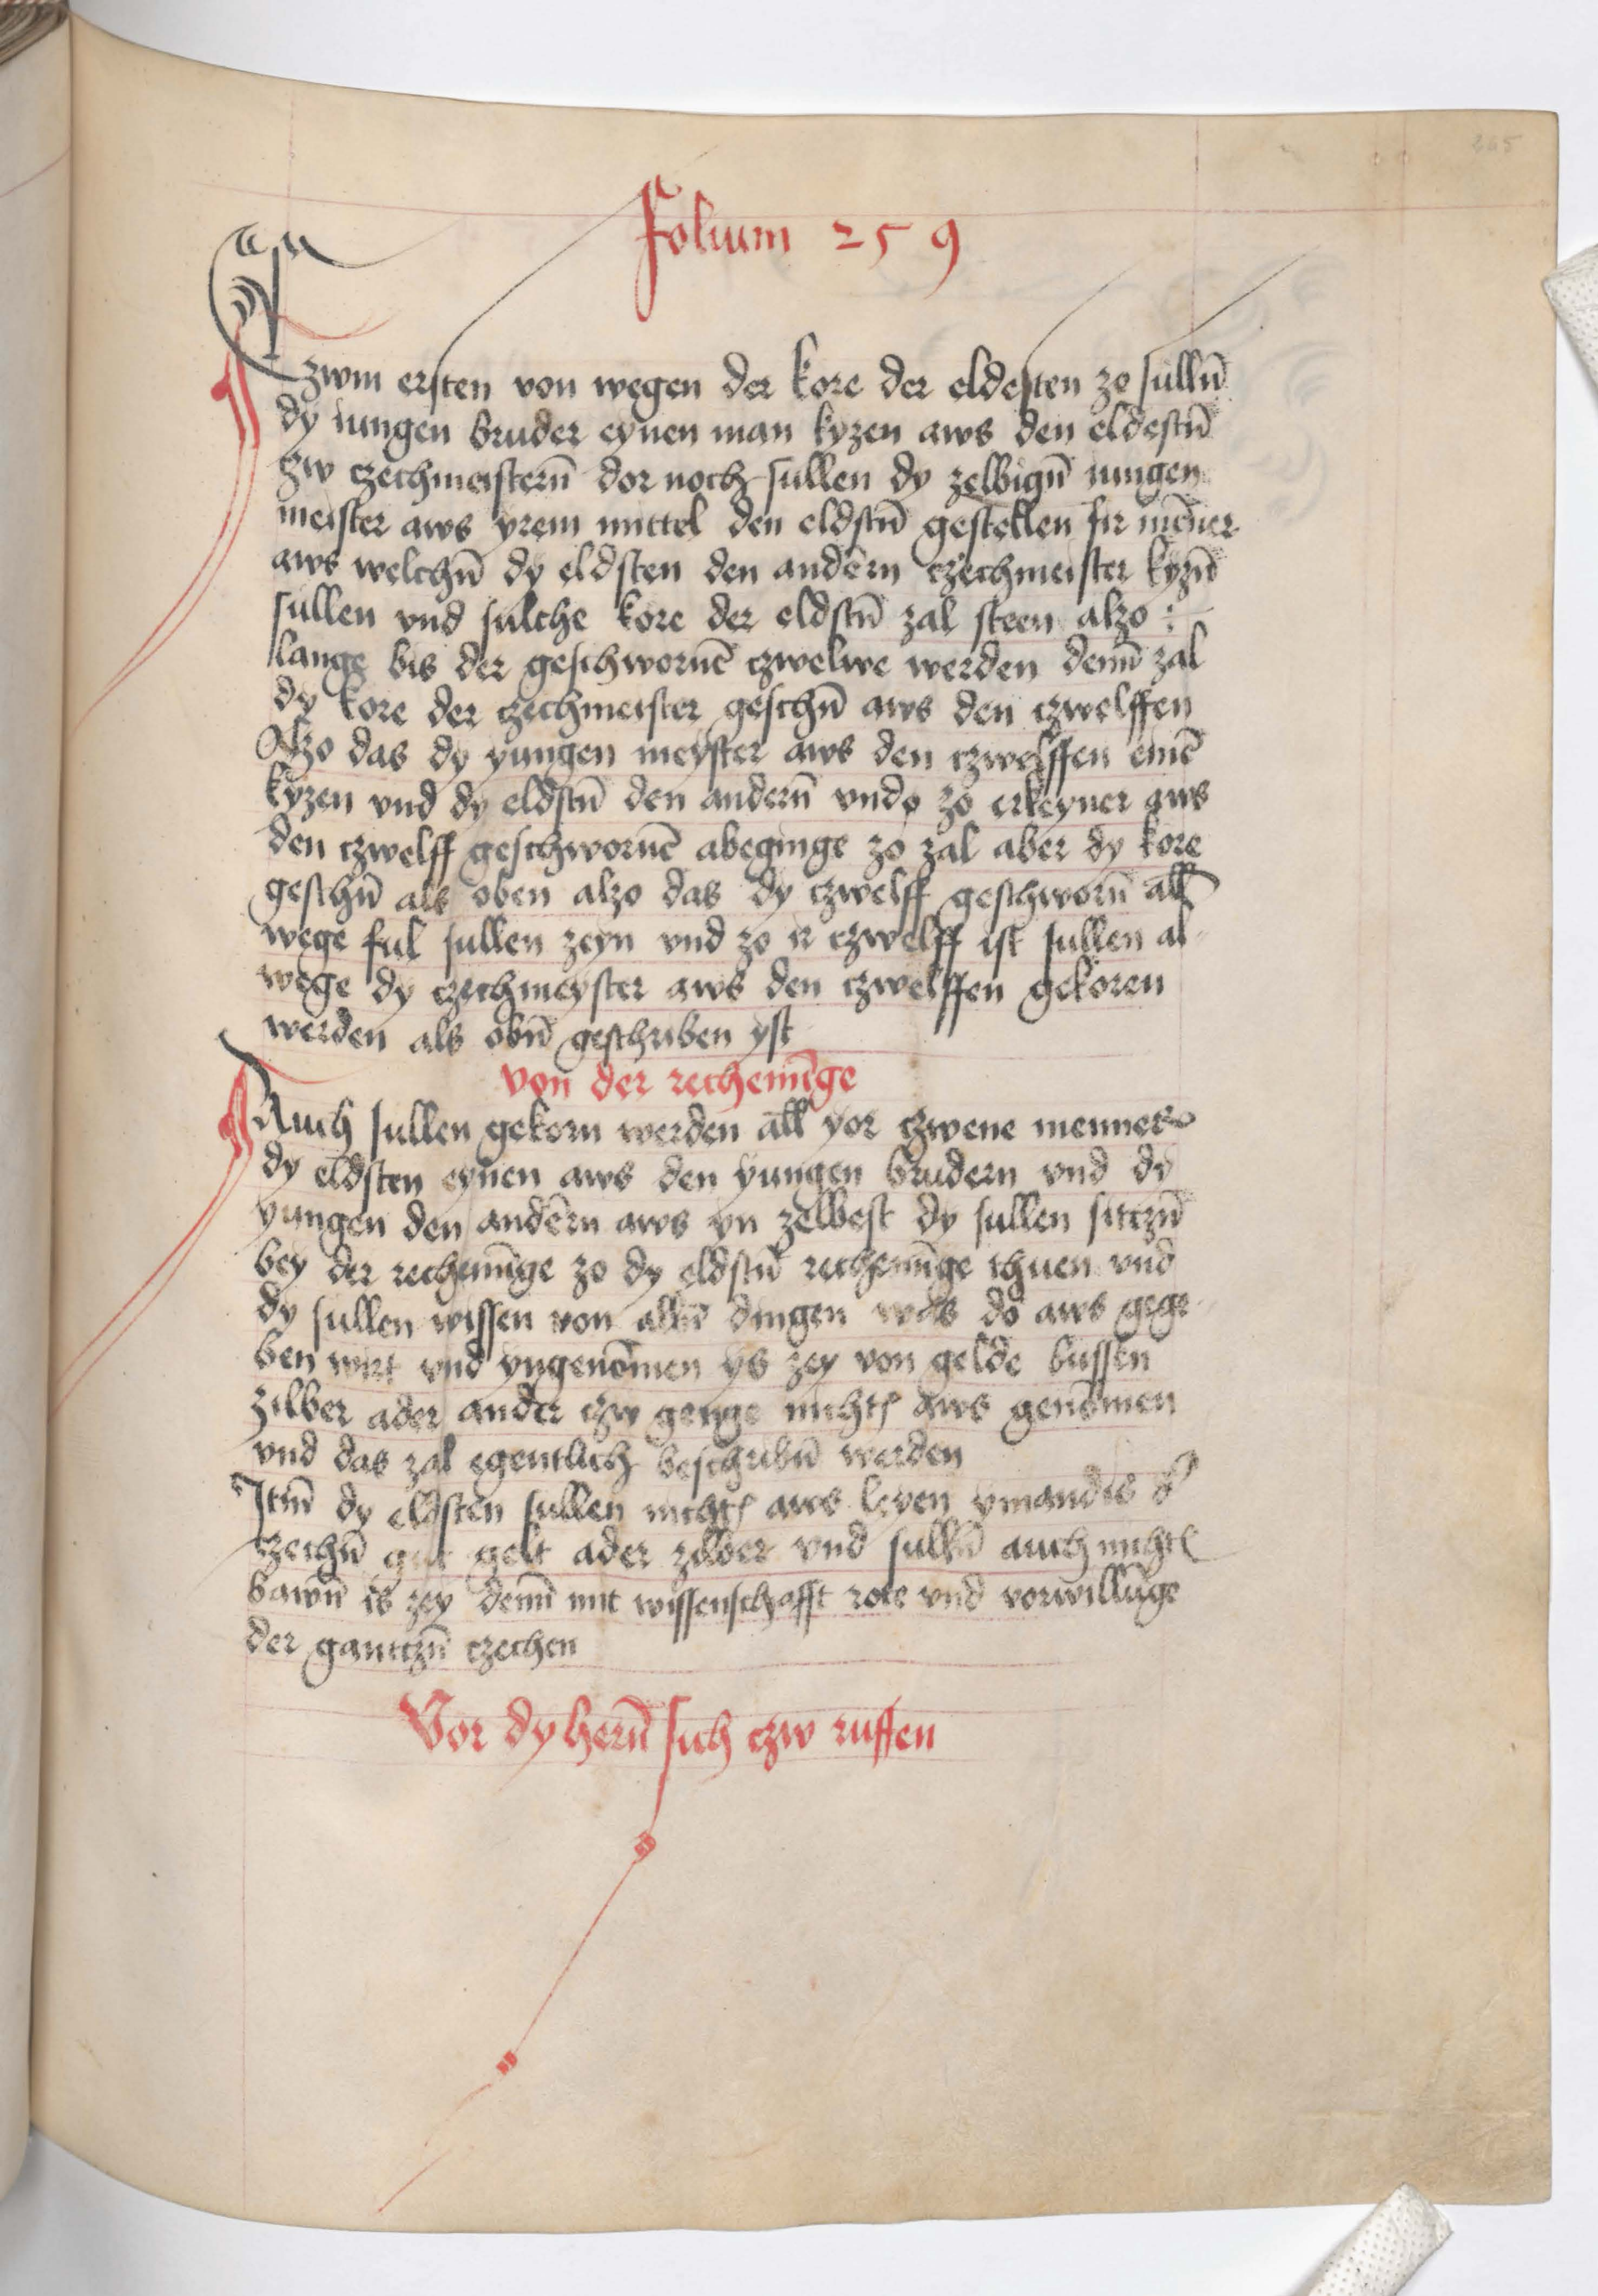 Folium 259
Czwm ersten von wegen der kore der eldesten zo sullñ
dy iungen bruder eynen man kyzen aws den eldestñ
czw czechmeisterñ dor noch sullen dy zelbigñ iungen
meister aws yrem mittel den eldstñ gestellen fir men̄er
aws welchñ dy eldsten den andern czechmeister kyzñ
sullen vnd sulche kore der eldstñ zal steen alzo :
lange bis der geschwornē czwelwe werden den̄ zal
dy kore der czechmeister geschñ aws den czwelffen
Alzo das dy yungen meyster aws den czwelffen einē
kyzen vnd dy eldstñ den anderñ vnde zo erkeyner aws
den czwelff geschwornē abeginge zo zal aber dy kore
geschñ als oben alzo das dy czwelff geschworñ all
wege ful sullen zeyn vnd zo ir czwelff ist sullen al
wege dy czechmeyster aws den czwelffen gekoren
werden als obñ geschriben yst
von der rechenīge
Auch sullen gekorn werden all yor czwene menner
dy eldsten eynen aws den yungen brudern vnd dy
yungen den andern aws yn zelbest dy sullen sitczñ
bey der rechenūge zo dy eldstñ rechenūge thuen vnd
dy sullen wissen von allñ dingen was do aws gege
ben wirt vnd yngenōmen ys zey von gelde bussen
zilber ader ander czw genge nichts aws genōmen
vnd das zal egentlich beschribñ werden
Itm̄ dy eldsten sullen nichts aws leyen ymandis d'
czechñ gut gelt ader zilber vnd sullñ auch nichts
bawñ is zey den̄ mit wissenschafft rote vnd vorwillūge
der gantczñ czechen
Vor dy herñ sich czw ruffen